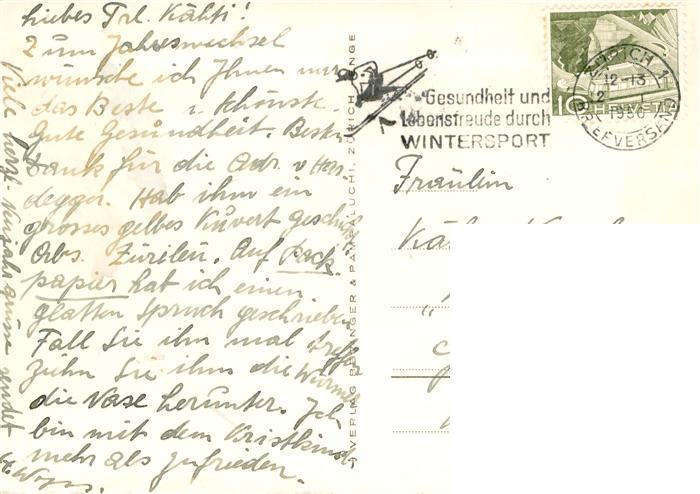 Liebes Frl. Käthi!
Zum Jahreswechsel
wünsche ich Ihnen nur
das Beste u. Schönste.
Gute Gesundheit. Besten
Dank für die Adr. v
degger. Hab ihm ein
grosses gelbes Kuvert
Orbs. Zürilen. Auf Pack-
papier hat ich einen
glatten Spruch geschrieben
Fall Sie ihn mal treffen
ziehn Sie ihm die Würmer
die Nase herunter. Ich
bin mit dem Kristkindli
mehr als zufrieden.
Wyss.
Viele herzl. Neujahrsgrüsse sendet
VERLAG BERINGER & PAMPALUCHI, ZÜRICH
Gesundheit und
Lebensfreude durch
WINTERSPORT
ZÜRICH 1
12-13
1950
BRIEFVERSAND
10 HELVETIA
Fräulein